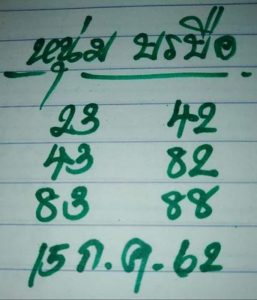 หนุ่ม บรบือ
23 42
43 82
83 88
15 ก.ค. 62